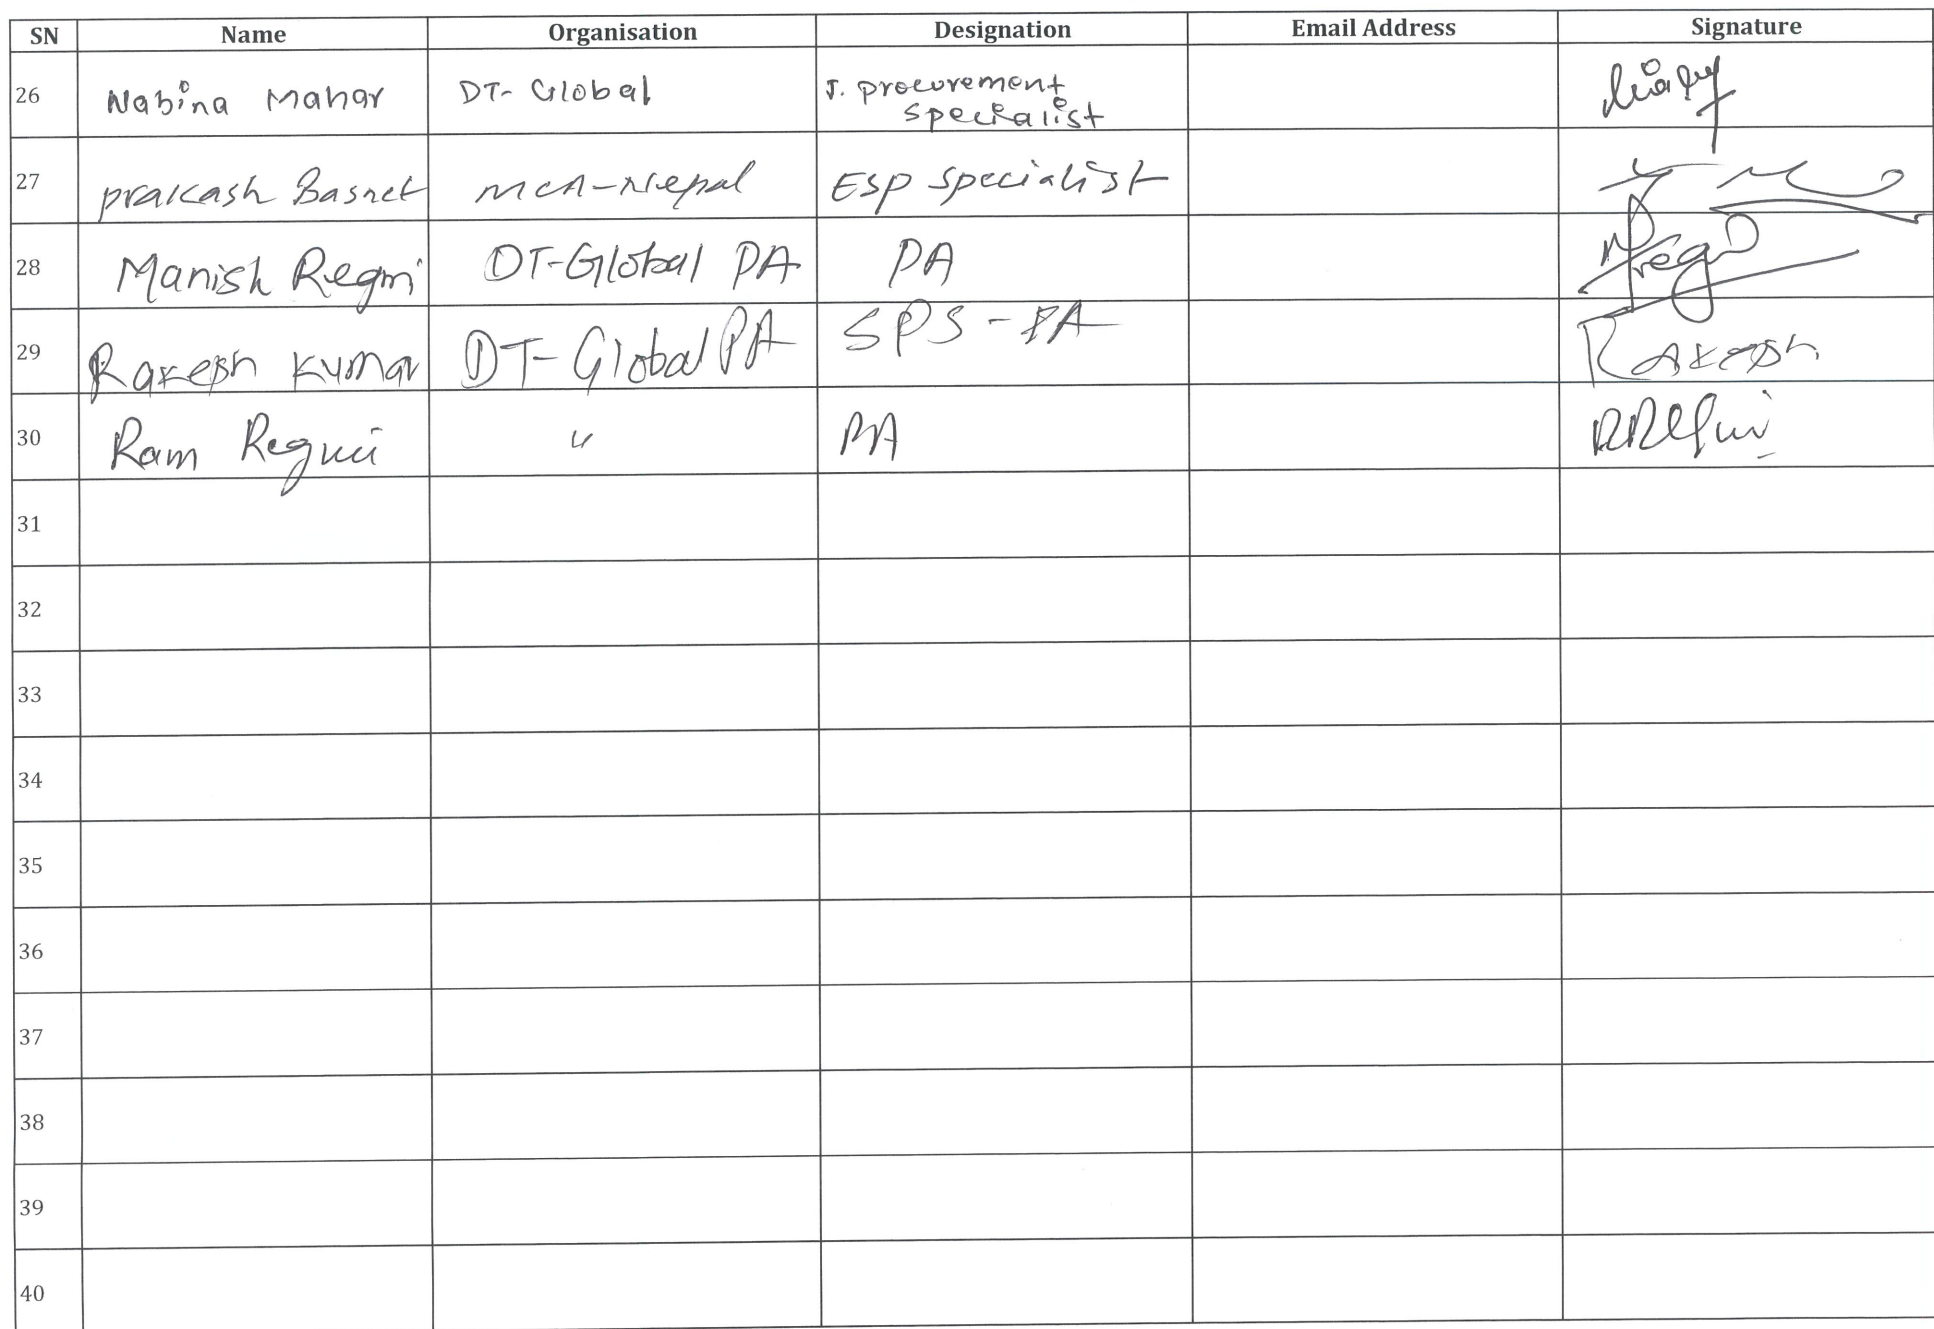 SN Name Organisation Designation Email Address Signature
26 Nabina Mahar DT- Global J. procurement
specialist
27 prakash Basnet MCA-Nepal ESP specialist
28 Manish Regmi DT-Global PA PA
29 Rakesh Kumar DT-Global PA SPS-PA Rakesh
30 Ram Regmi " PA
31
32
33
34
35
36
37
38
39
40